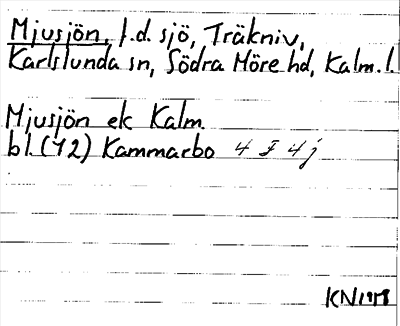 Mjusjön, f.d. sjö, Träkniv,
Karlslunda sn, Södra Möre hd, Kalm. l.
Mjusjön ek Kalm
bl. (72) Kammarbo 4 F 4 j